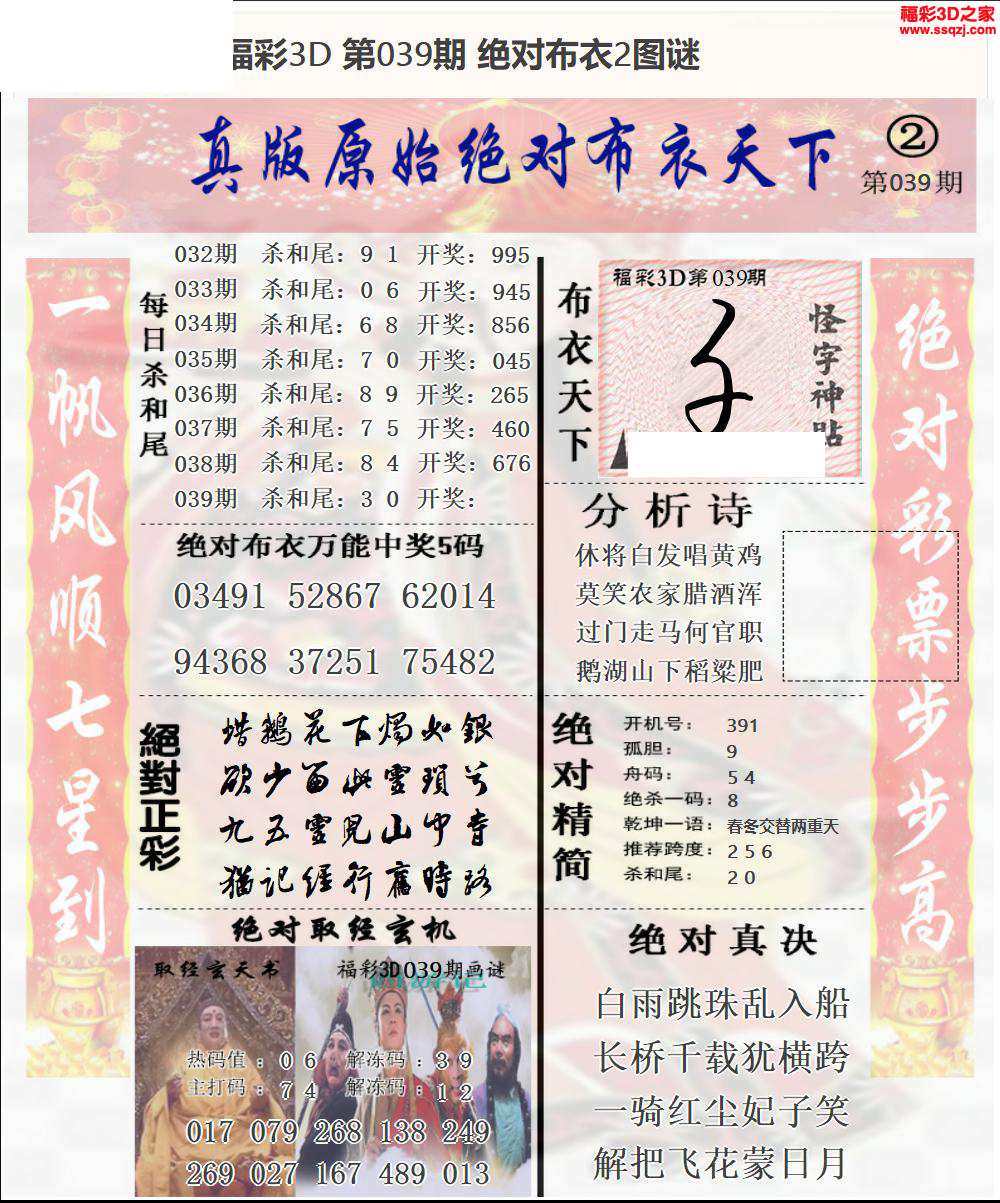 福彩3D之家
www.ssqzj.com
福彩3D 第039期 绝对布衣2图谜
真版原始绝对布衣天下
②
第039期
一帆风顺七星到
每日杀和尾
032期 杀和尾：9 1 开奖：995
033期 杀和尾：0 6 开奖：945
034期 杀和尾：6 8 开奖：856
035期 杀和尾：7 0 开奖：045
036期 杀和尾：8 9 开奖：265
037期 杀和尾：7 5 开奖：460
038期 杀和尾：8 4 开奖：676
039期 杀和尾：3 0 开奖：
绝对布衣万能中奖5码
03491 52867 62014
94368 37251 75482
絕對正彩
花下燭如銀
欲少留此靈瑣兮
九五靈見山中音
猶記經行舊時路
绝对取经玄机
取经玄天书
福彩3D039期画谜
热码值：0 6 解冻码：3 9
主打码：7 4 解冻码：1 2
017 079 268 138 249
269 027 167 489 013
布衣天下
福彩3D第039期
怪字神贴
分析诗
休将白发唱黄鸡
莫笑农家腊酒浑
过门走马何官职
鹅湖山下稻粱肥
绝对精简
开机号： 391
孤胆： 9
舟码： 5 4
绝杀一码： 8
乾坤一语： 春冬交替两重天
推荐跨度： 2 5 6
杀和尾： 2 0
绝对真决
白雨跳珠乱入船
长桥千载犹横跨
一骑红尘妃子笑
解把飞花蒙日月
绝对彩票步步高